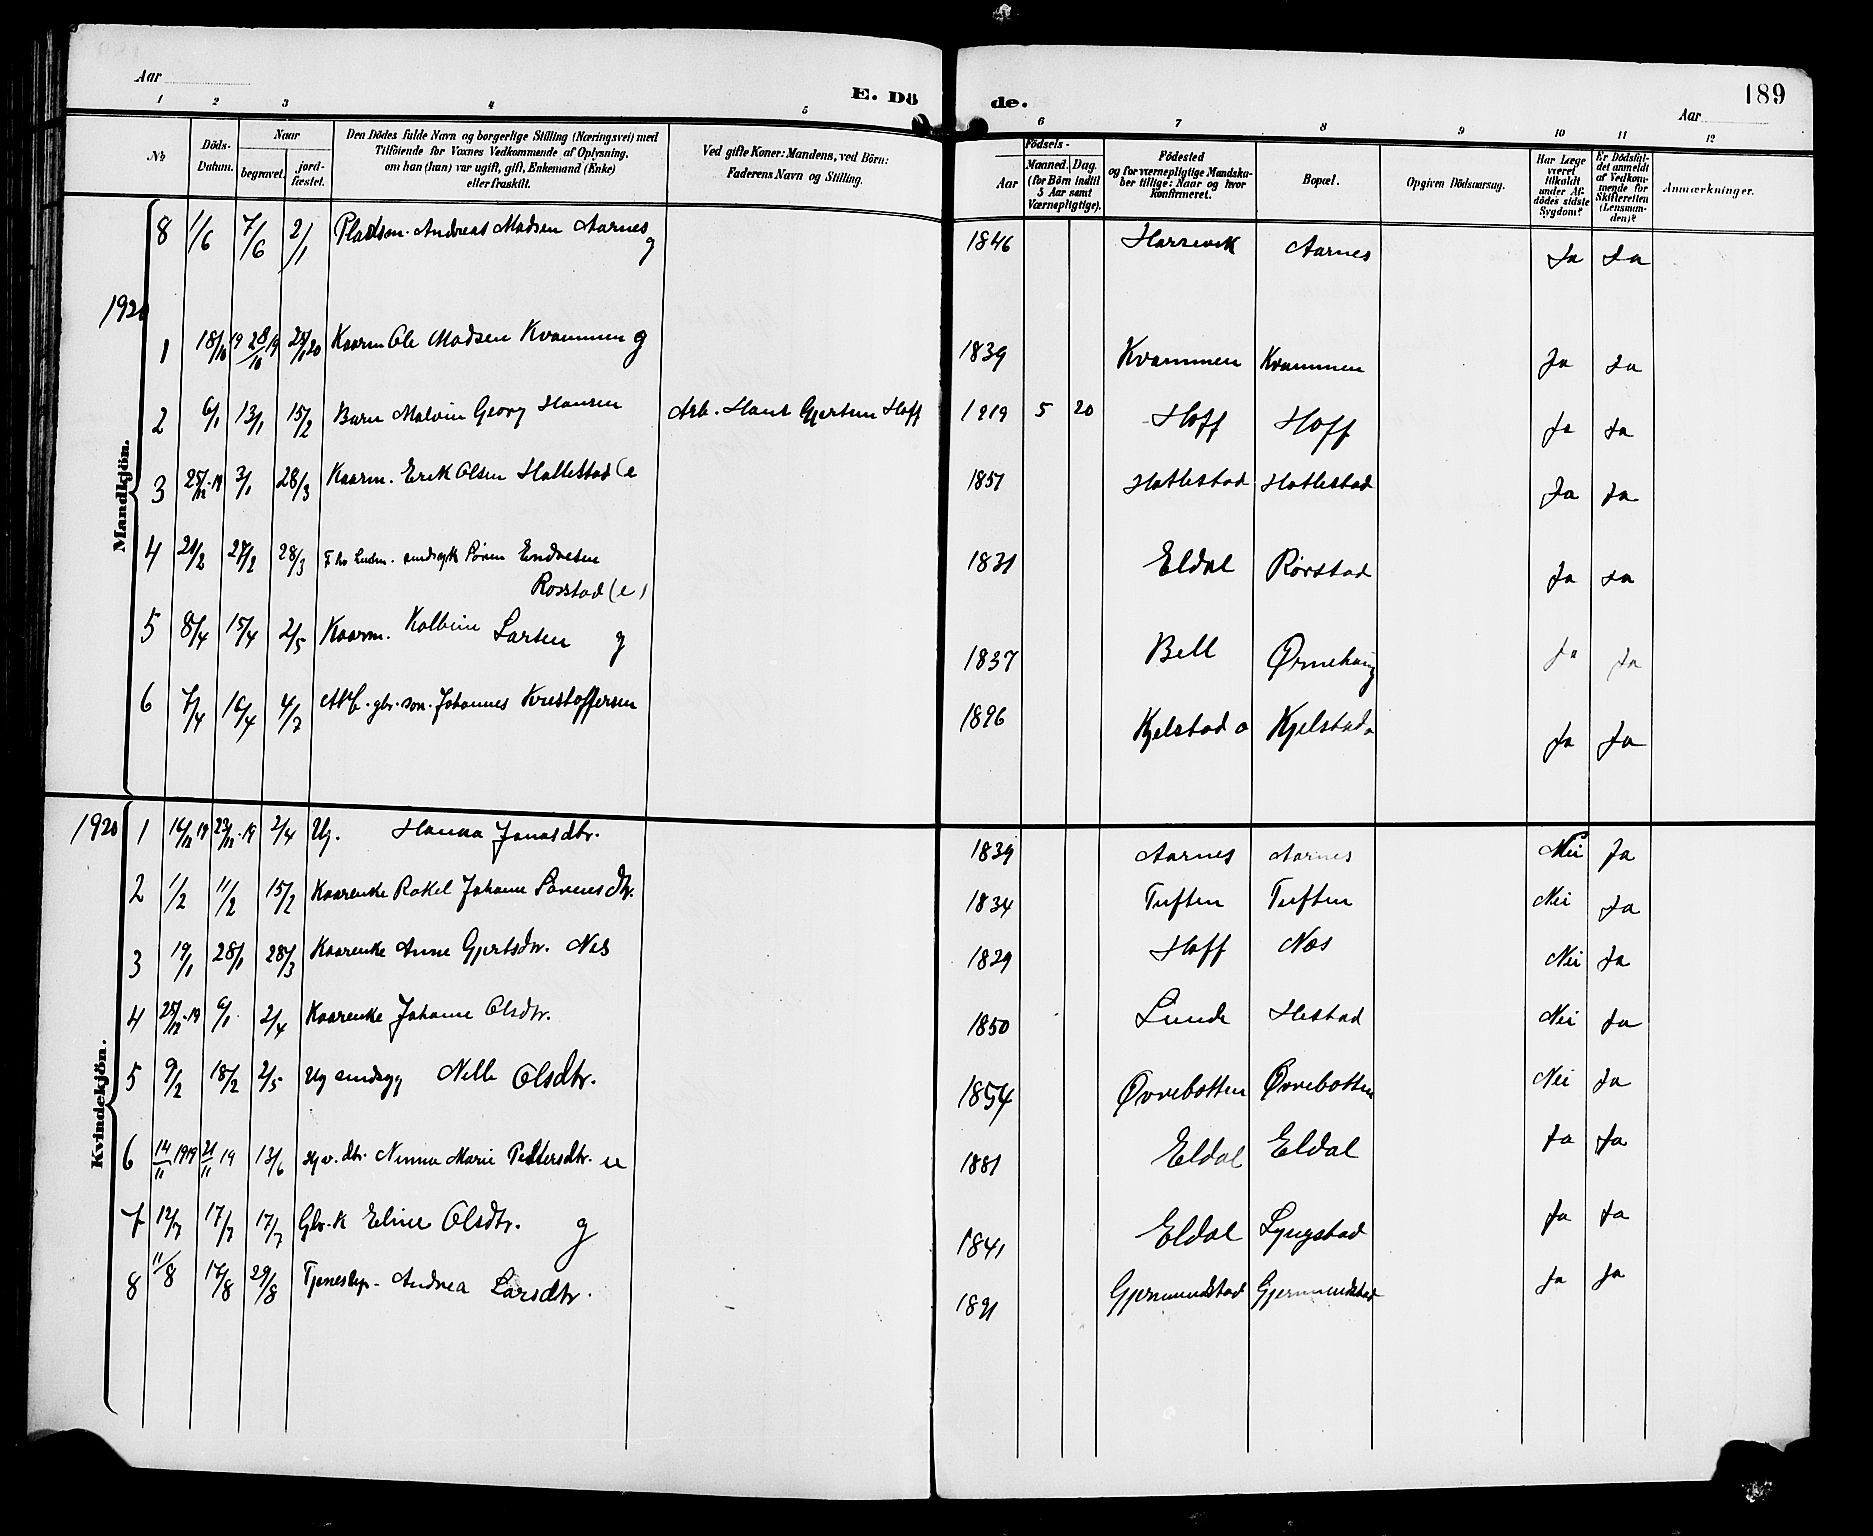 Aar
E. Dö
de.
189
Aar
1 2 3 4 5 6 7 8 9 10 11 12
No
Döds-Datum.
Naar
begravet.
jord-fæstet.
Den Dödes fulde Navn og borgerlige Stilling (Næringsvei) med
Tilföiende for Voxnes Vedkommende af Oplysning,
om han (hun) var ugift, gift, Enkemand (Enke)
eller fraskilt.
Ved gifte Koner: Mandens, ved Börn:
Faderens Navn og Stilling.
Födsels-
Aar
Maaned. Dag.
(for Börn indtil
5 Aar samt
Værnepligtige).
Födested
og for værnepligtige Mandska-
ber tillige: Naar og hvor
konfirmeret.
Bopæl.
Opgiven Dödsaarsag.
Har Læge
været
tilkaldt
under Af-
dödes sidste
Sygdom?
Er Dödsfal-
det anmeldt
af Vedkom-
mende for
Skifteretten
(Lensman-
den)?
Anmærkninger.
Mandkjön.
8 1/6 7/6 2/1 Pladsm. Andreas Madsen Aarnes g 1846 Aarnes Ja Ja
1920
1 18/10 19 28/10 19 25/1 20 Kaarm Ole Madsen Kvammen g 1839 Kvammen Kvammen Ja Ja
2 6/1 13/1 15/2 Barn Malvin Georg Hansen Arb. Hans Gjertsen Hoff 1919 5 20 Hoff Hoff Ja Ja
3 25/12-19 3/1 28/3 Kaarm. Erik Olsen Hatlestad (e 1857 Hatlestad Hatlestad Ja Ja
4 21/2 27/2 28/3 sindsyk Sören Endresen
Rørstad (e) 1831 Eldal Rørstad Ja Ja
5 8/4 15/4 2/5 Kaarm. Kolbein Larsen g 1837 Bell Ørnehaug Ja Ja
6 7/4 16/4 4/7 gbr. søn. Johannes Kristoffersen 1896 Kjelstad o Kjelstad o Ja Ja
Kvindekjön.
1920 1 16/12 19 23/12-19 2/4 Ug. Hanna Jonasdtr. 1839 Aarnes Aarnes Nei Ja
2 1/2 11/2 15/2 Kaarenke Rakel Johanne Sørensdtr. 1834 Tuften Tuften Nei Ja
3 19/1 28/1 28/3 Kaarenke Anne Gjertsdtr. Nes 1829 Hoff Nes Nei Ja
4 25/12-19 6/1 2/4 Kaarenke Johanne Olsdtr. 1850 Lunde Hestad Nei Ja
5 9/2 18/2 2/5 Ug sindsyg Nille Olsdtr. 1854 Øvrebotten Øvrebotten Nei Ja
6 14/11 1919 21/11 19 13/6 dtr. Ninna Marie Pettersdtr. u 1881 Eldal Eldal Ja Ja
7 12/7 17/7 17/7 Gbr. k Eline Olsdtr. g 1841 Eldal Lyngstad Ja Ja
8 11/8 17/8 29/8 Tjenestep. Andrea Larsdtr. 1891 Gjermundstad Gjermundstad Ja Ja